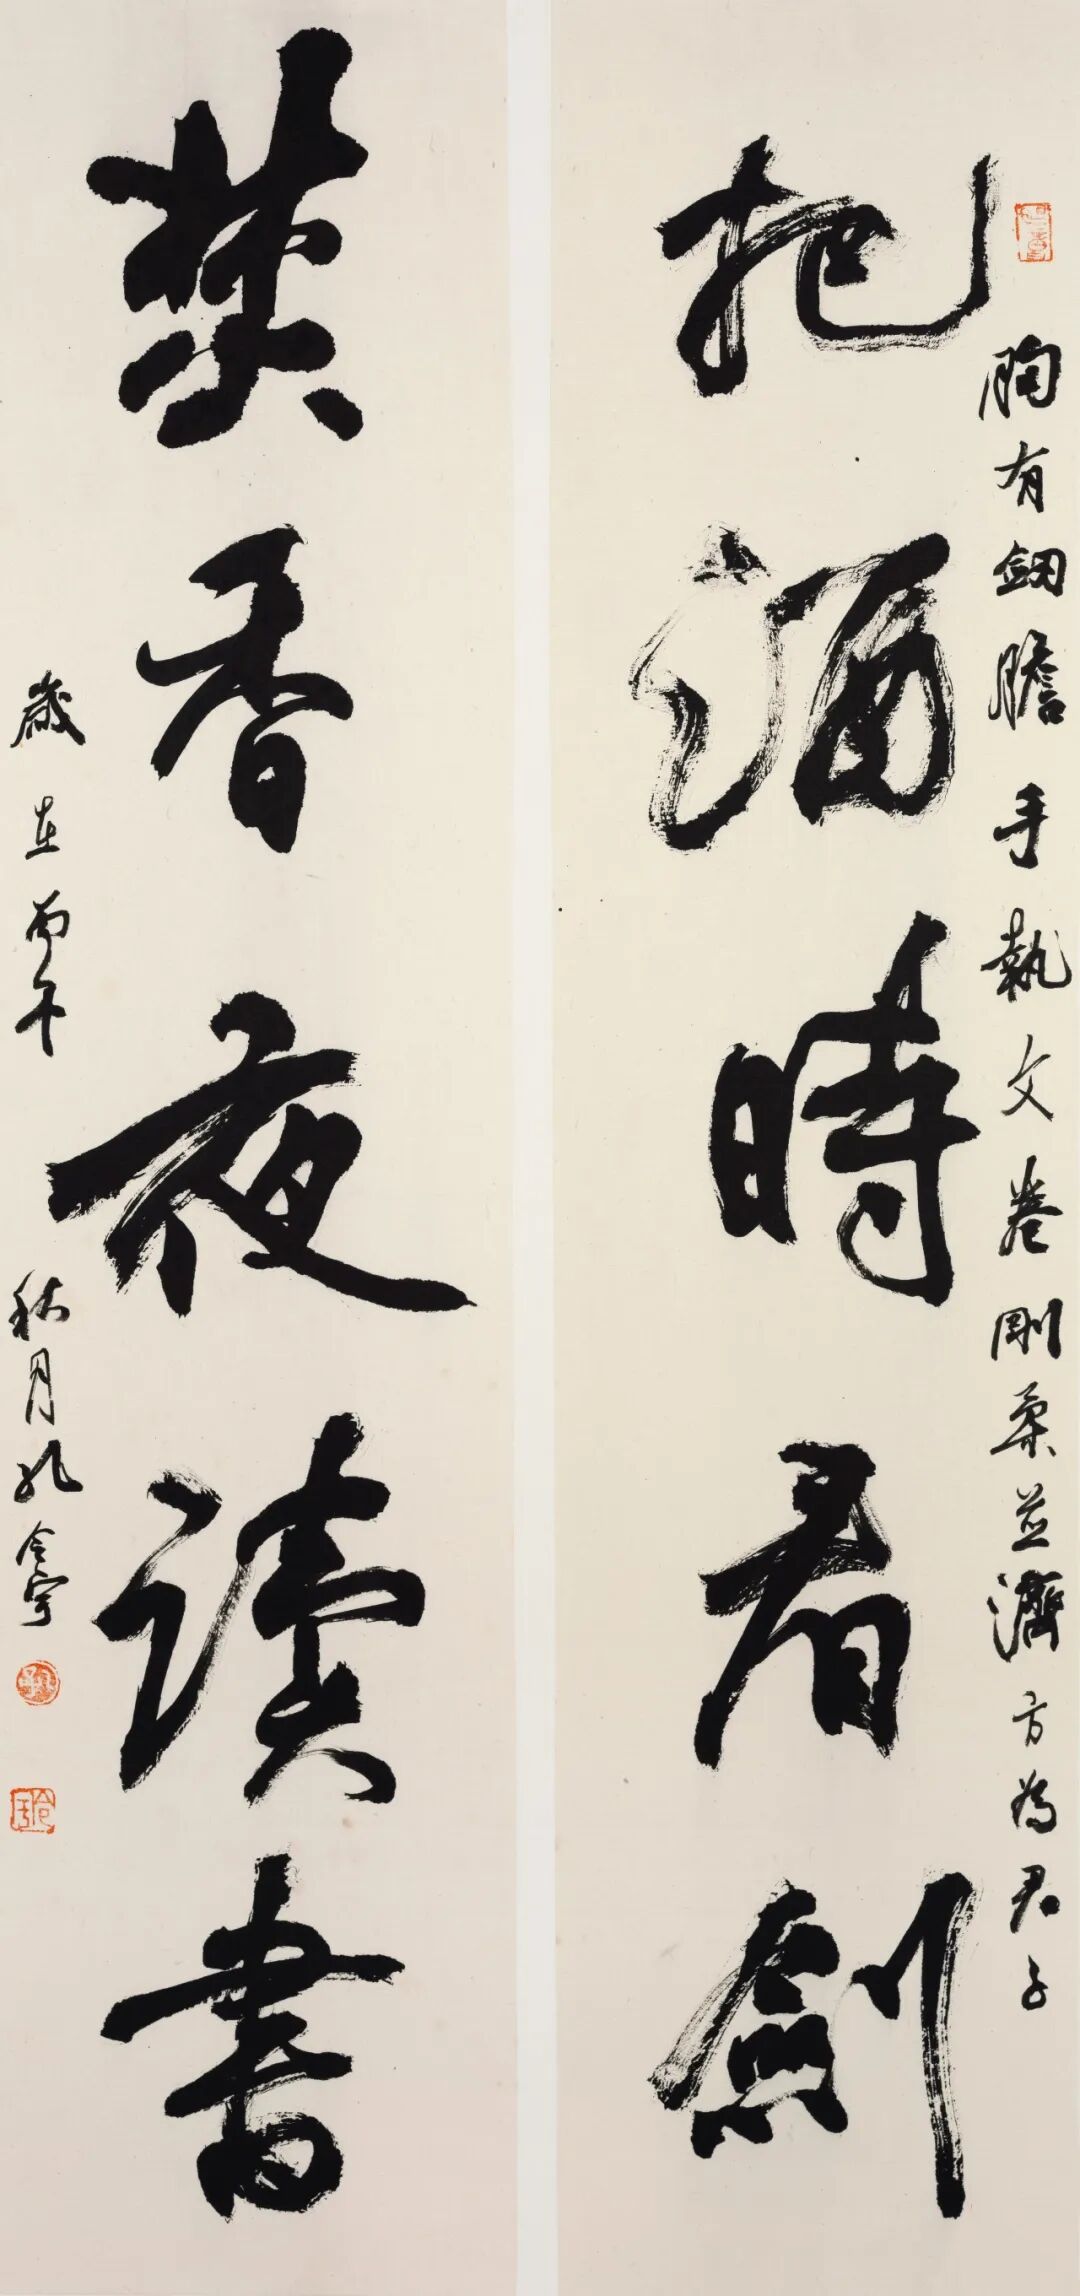 胸有劒膽手執文卷剛柔並濟方為君子
把酒時看劍
焚香夜讀書
歲在丙午秋月孔令宇